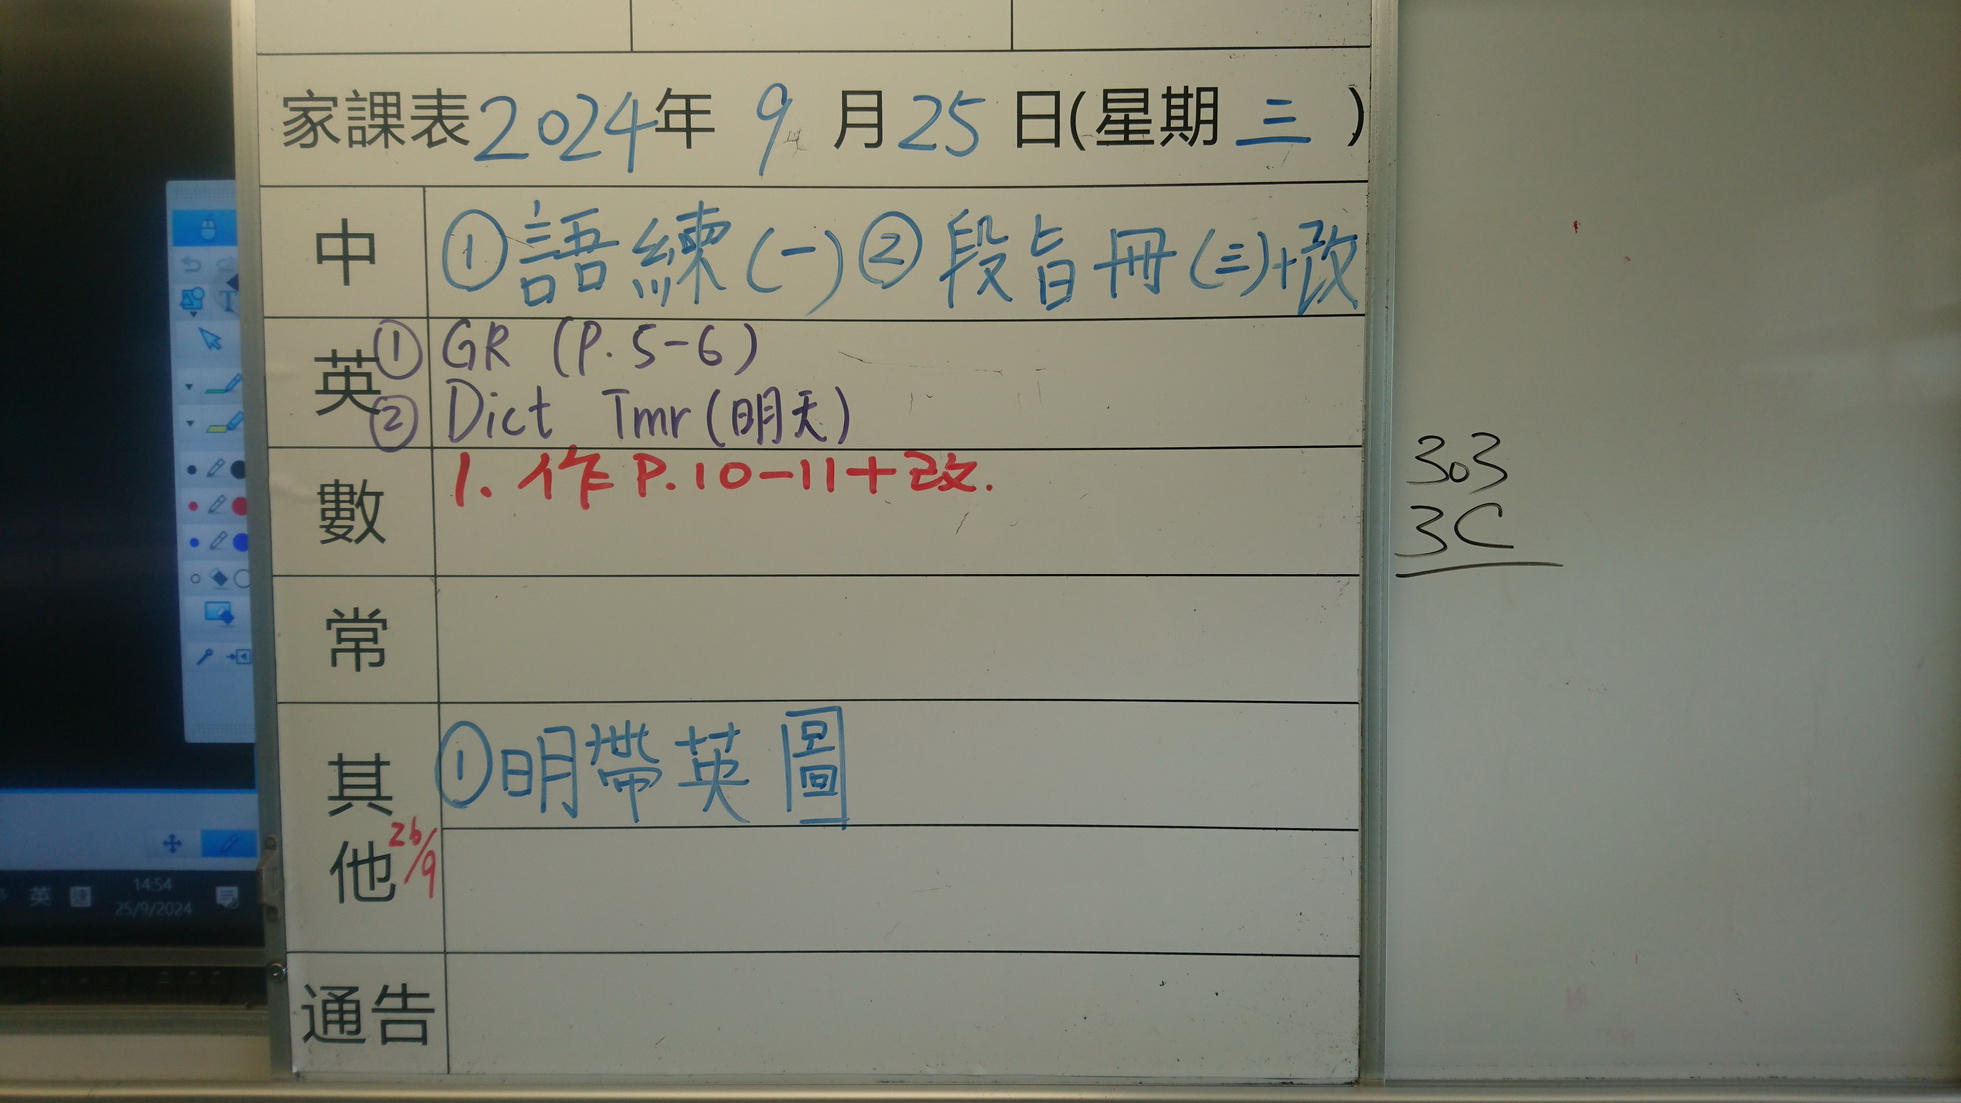 家課表2024年 9 月25日(星期三)
中 ①語練(一)②段旨冊(三)+改
英 ① GR (P.5-6)
② Dict Tmr(明天)
數 1. 作P.10-11+改.
常
其他 ①明帶英圖
26/9
通告
303
3C
T
英
14:54
25/9/2024